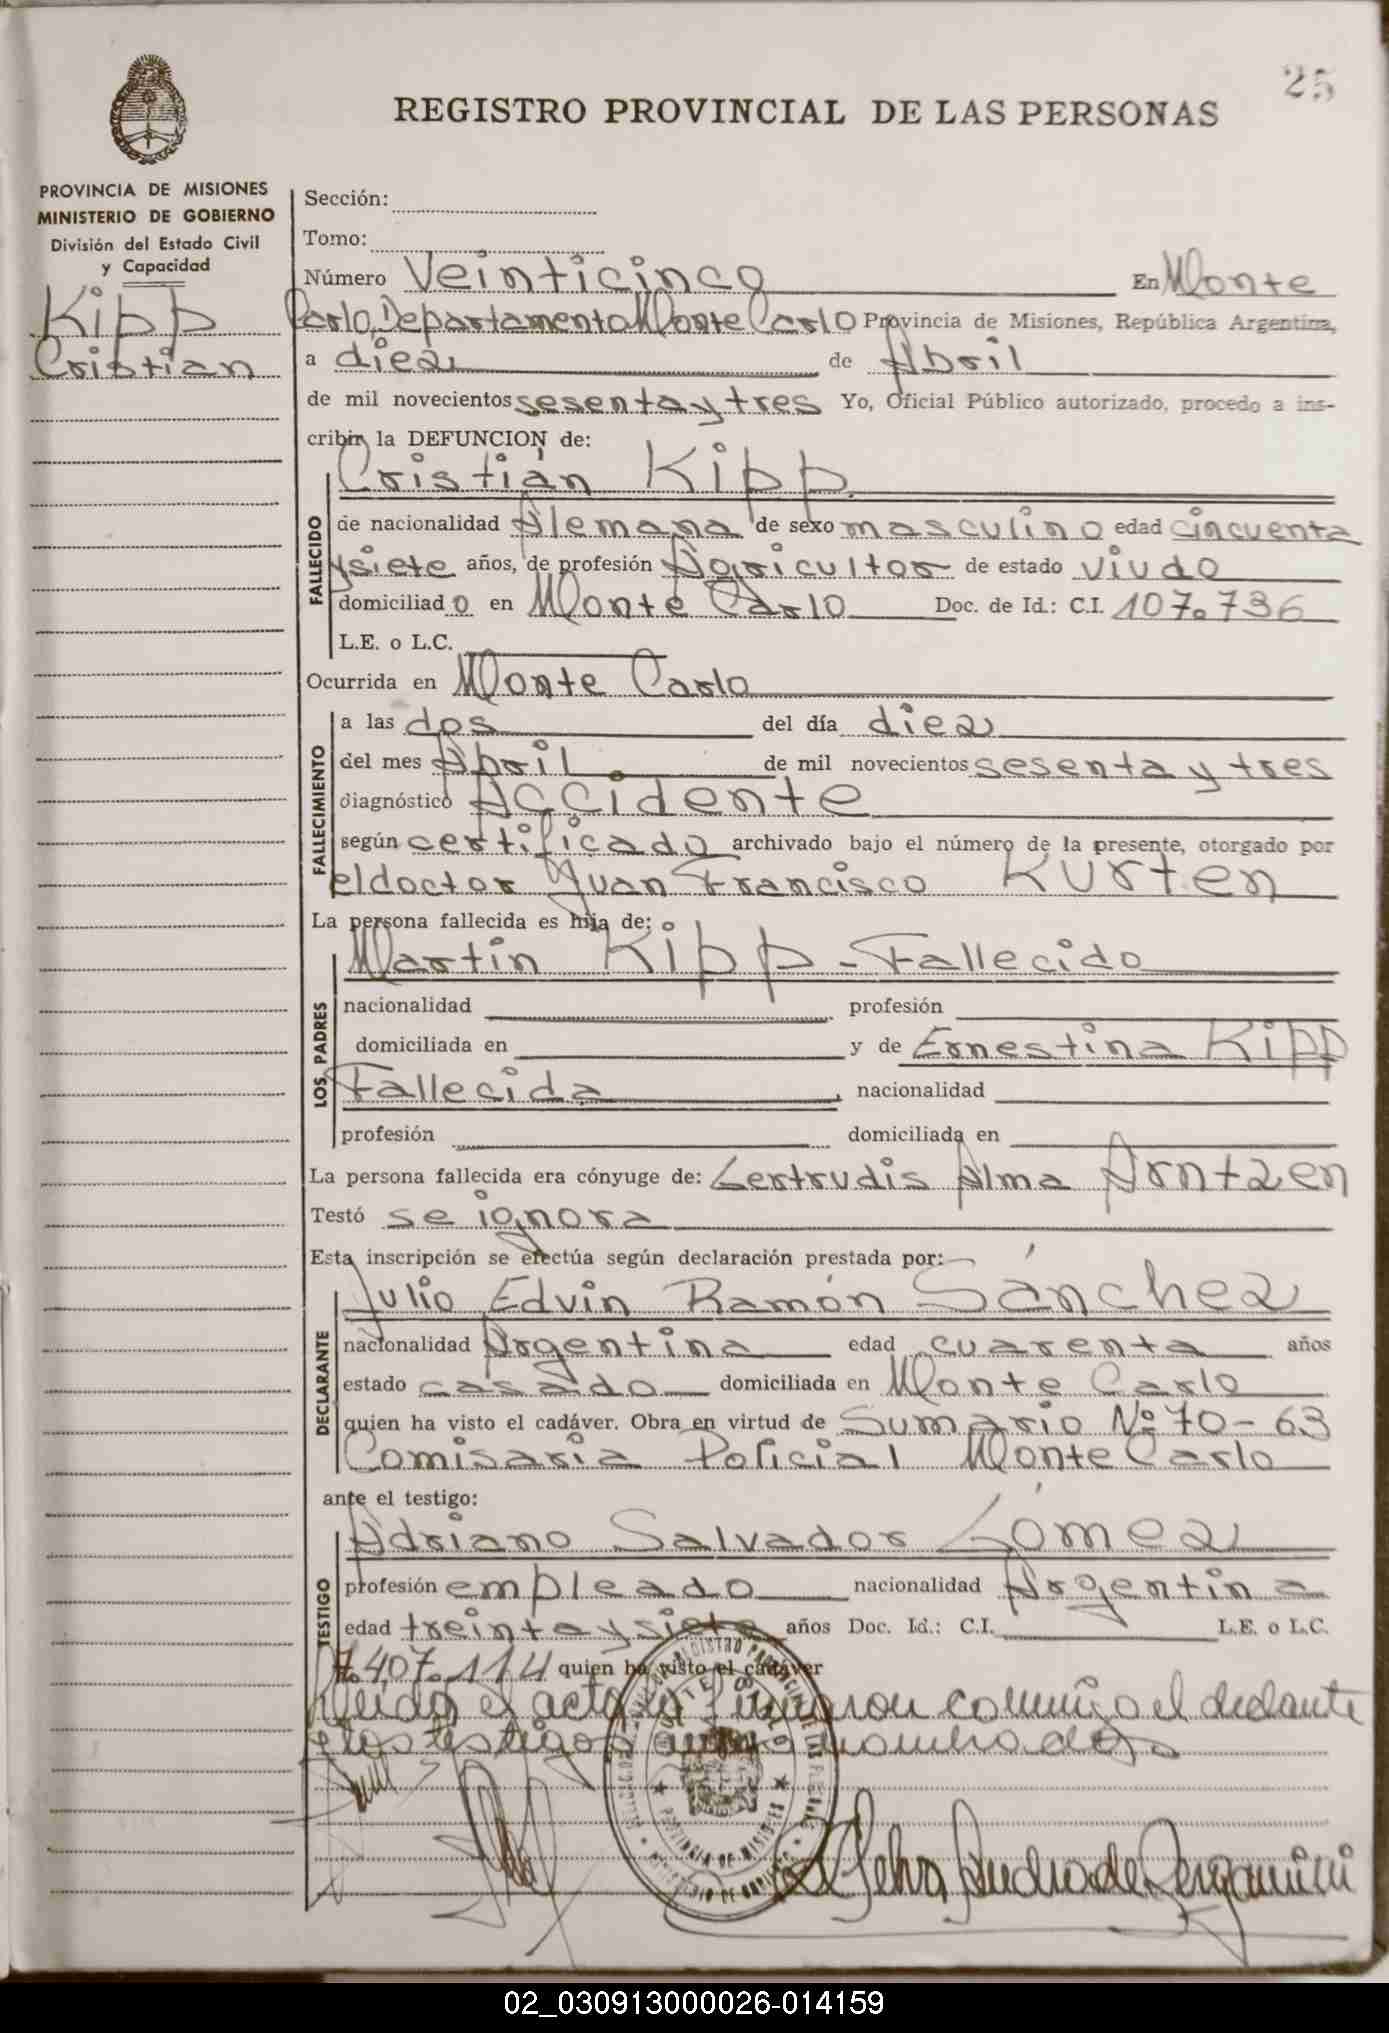 25
REGISTRO PROVINCIAL DE LAS PERSONAS
PROVINCIA DE MISIONES
MINISTERIO DE GOBIERNO
División del Estado Civil
y Capacidad
Kipp
Cristian
Sección:
Tomo:
Número Veinticinco En Monte
Carlo, Departamento Monte Carlo Provincia de Misiones, República Argentina,
a diez de Abril
de mil novecientos sesenta y tres Yo, Oficial Público autorizado, procedo a ins-
cribir la DEFUNCION de:
Cristián Kipp
FALLECIDO
de nacionalidad Alemana de sexo masculino edad cincuenta
y siete años, de profesión Agricultor de estado viudo
domiciliado en Monte Carlo Doc. de Id.: C.I. 107.736
L.E. o L.C.
Ocurrida en Monte Carlo
FALLECIMIENTO
a las dos del día diez
del mes Abril de mil novecientos sesenta y tres
diagnóstico Accidente
según certificado archivado bajo el número de la presente, otorgado por
el doctor Juan Francisco Kurten
La persona fallecida es hija de:
LOS PADRES
Martin Kipp - Fallecido
nacionalidad profesión
domiciliada en y de Ernestina Kipp
Fallecida nacionalidad
profesión domiciliada en
La persona fallecida era cónyuge de: Gertrudis Alma Arntzen
Testó se ignora
Esta inscripción se efectúa según declaración prestada por:
DECLARANTE
Julio Edvin Ramón Sánchez
nacionalidad Argentina edad cuarenta años
estado casado domiciliada en Monte Carlo
quien ha visto el cadáver. Obra en virtud de Sumario Nº 70-63
Comisaria Policial Monte Carlo
ante el testigo:
TESTIGO
Adriano Salvador Gómez
profesión empleado nacionalidad Argentina
edad treinta y siete años Doc. Id.: C.I. L.E. o L.C.
7.407.114 quien ha visto el cadáver
leida el acta la firmaron conmigo el declarante
y los testigos nombrados
PROVINCIA DE MISIONES
de Bergamini
02_030913000026-014159